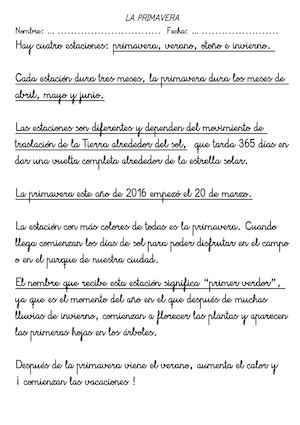 LA PRIMAVERA
Nombre: ... ................................ Fecha: ... ........................
Hay cuatro estaciones: primavera, verano, otoño e invierno.
Cada estación dura tres meses, la primavera dura los meses de
abril, mayo y junio.
Las estaciones son diferentes y dependen del movimiento de
traslación de la Tierra alrededor del sol, que tarda 365 días en
dar una vuelta completa alrededor de la estrella solar.
La primavera este año de 2016 empezó el 20 de marzo.
La estación con más colores de todas es la primavera. Cuando
llega comienzan los días de sol para poder disfrutar en el campo
o en el parque de nuestra ciudad.
El nombre que recibe esta estación significa "primer verdor",
ya que es el momento del año en el que después de muchas
lluvias de invierno, comienzan a florecer las plantas y aparecen
las primeras hojas en los árboles.
Después de la primavera viene el verano, aumenta el calor y
¡ comienzan las vacaciones !